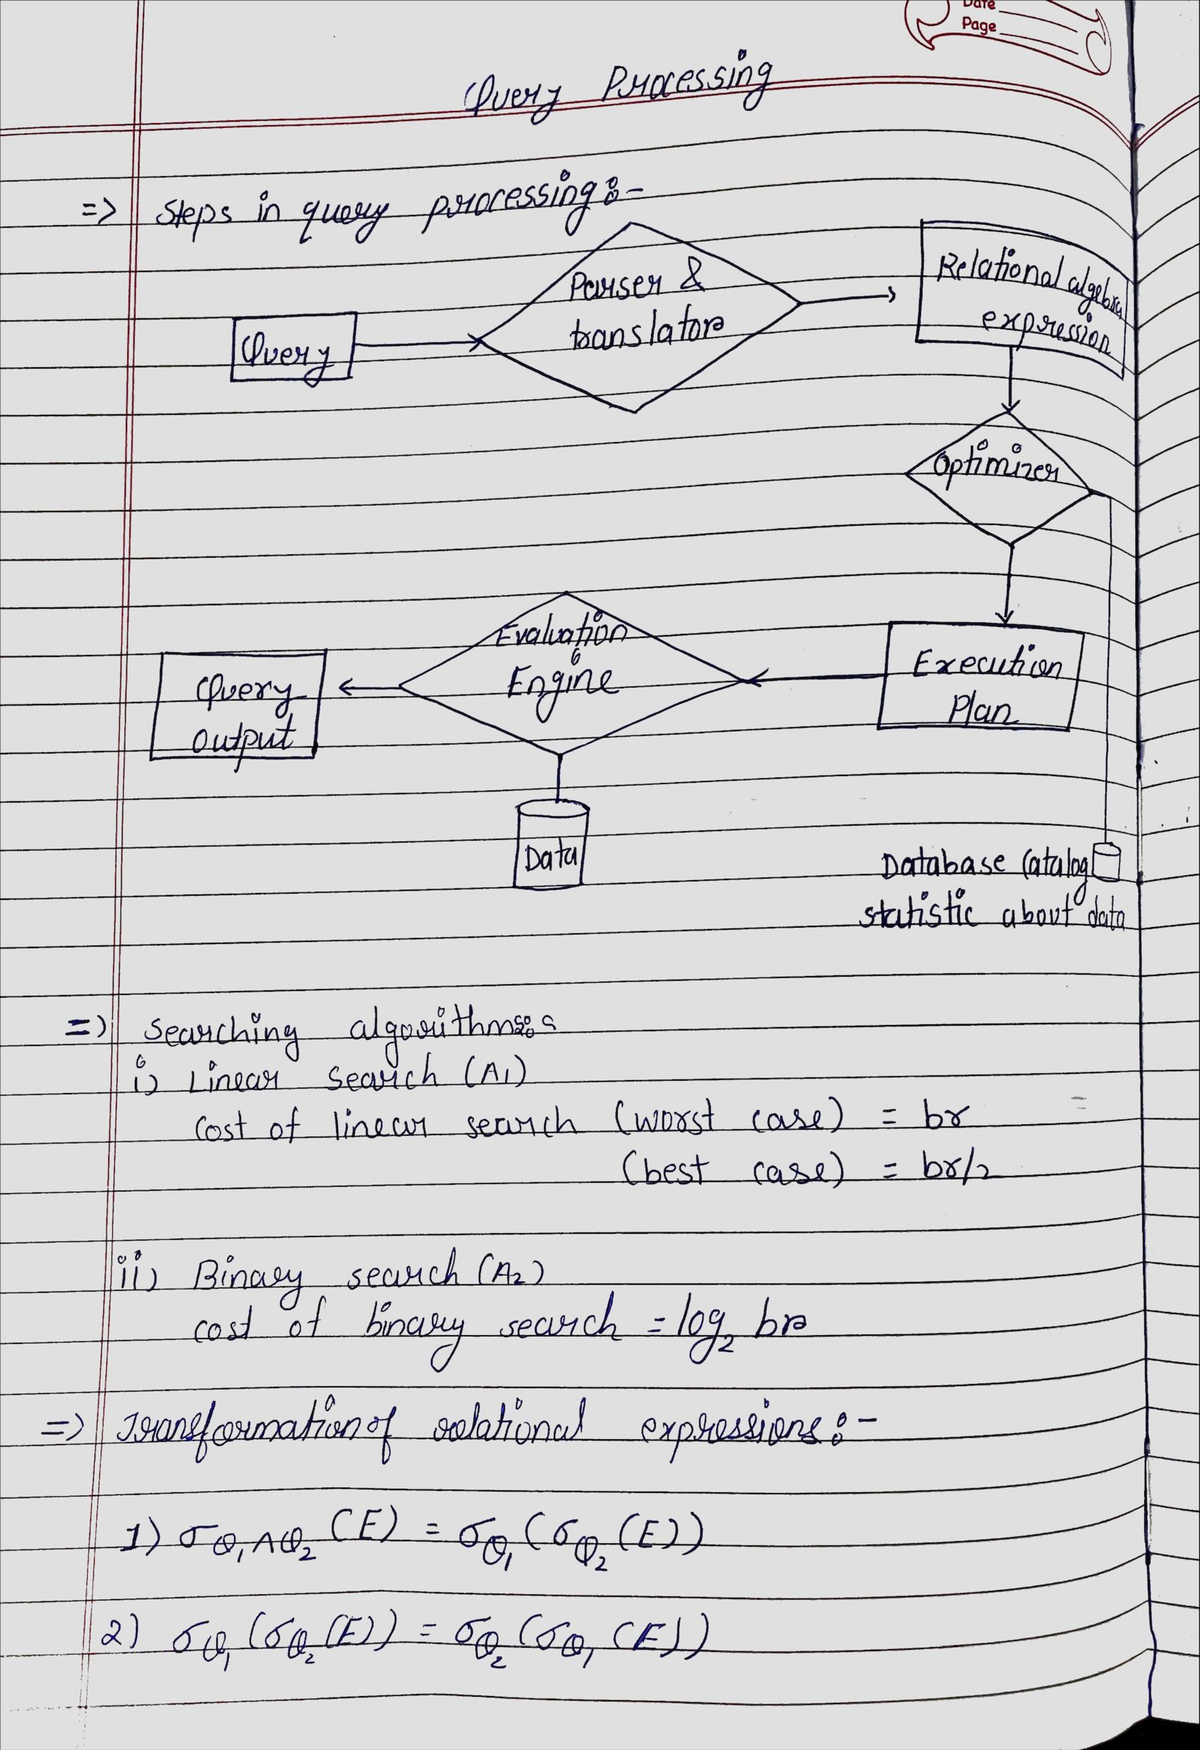 Date
Page
Query Processing
=> Steps in query processing :-
Query
Parser &
translator
Relational algebra
expression
Optimizer
Execution
Plan
Evaluation
Engine
Query
output
Data
Database Catalog
statistic about data
=> Searching algorithms:
i) Linear search (A1)
Cost of linear search (worst case) = br
(best case) = br/2
ii) Binary search (A2)
cost of binary search = log₂ br
=> Transformation of relational expressions :-
1) σθ₁∧θ₂ (E) = σθ₁ (σθ₂ (E))
2) σθ₁ (σθ₂ (E)) = σθ₂ (σθ₁ (E))